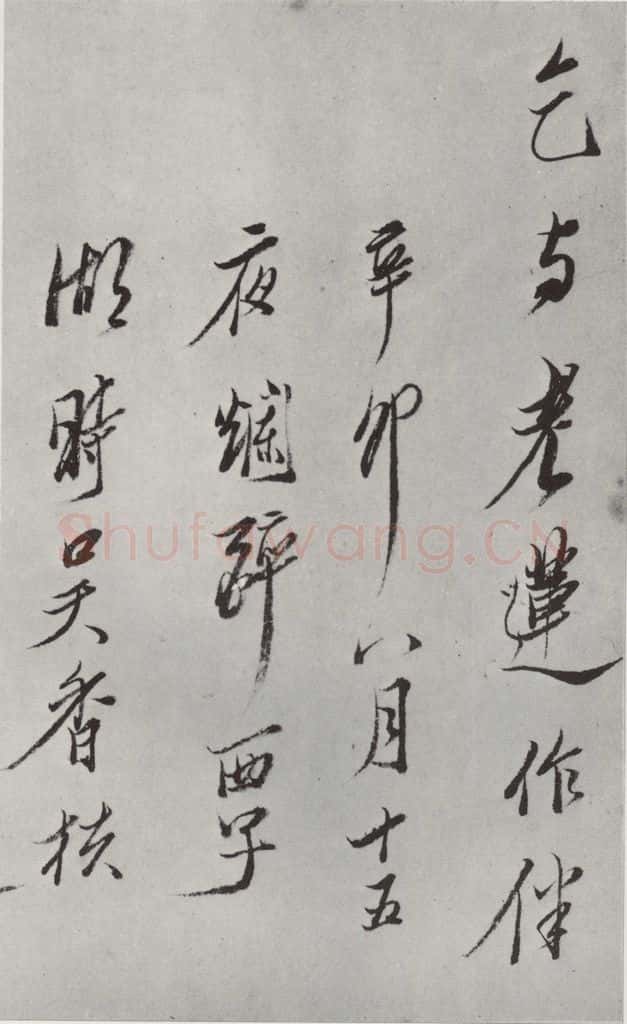 乞与老蓮作伴
辛卯八月十五
夜爛醉西子
湖時吴香扶
Shufawang.CN